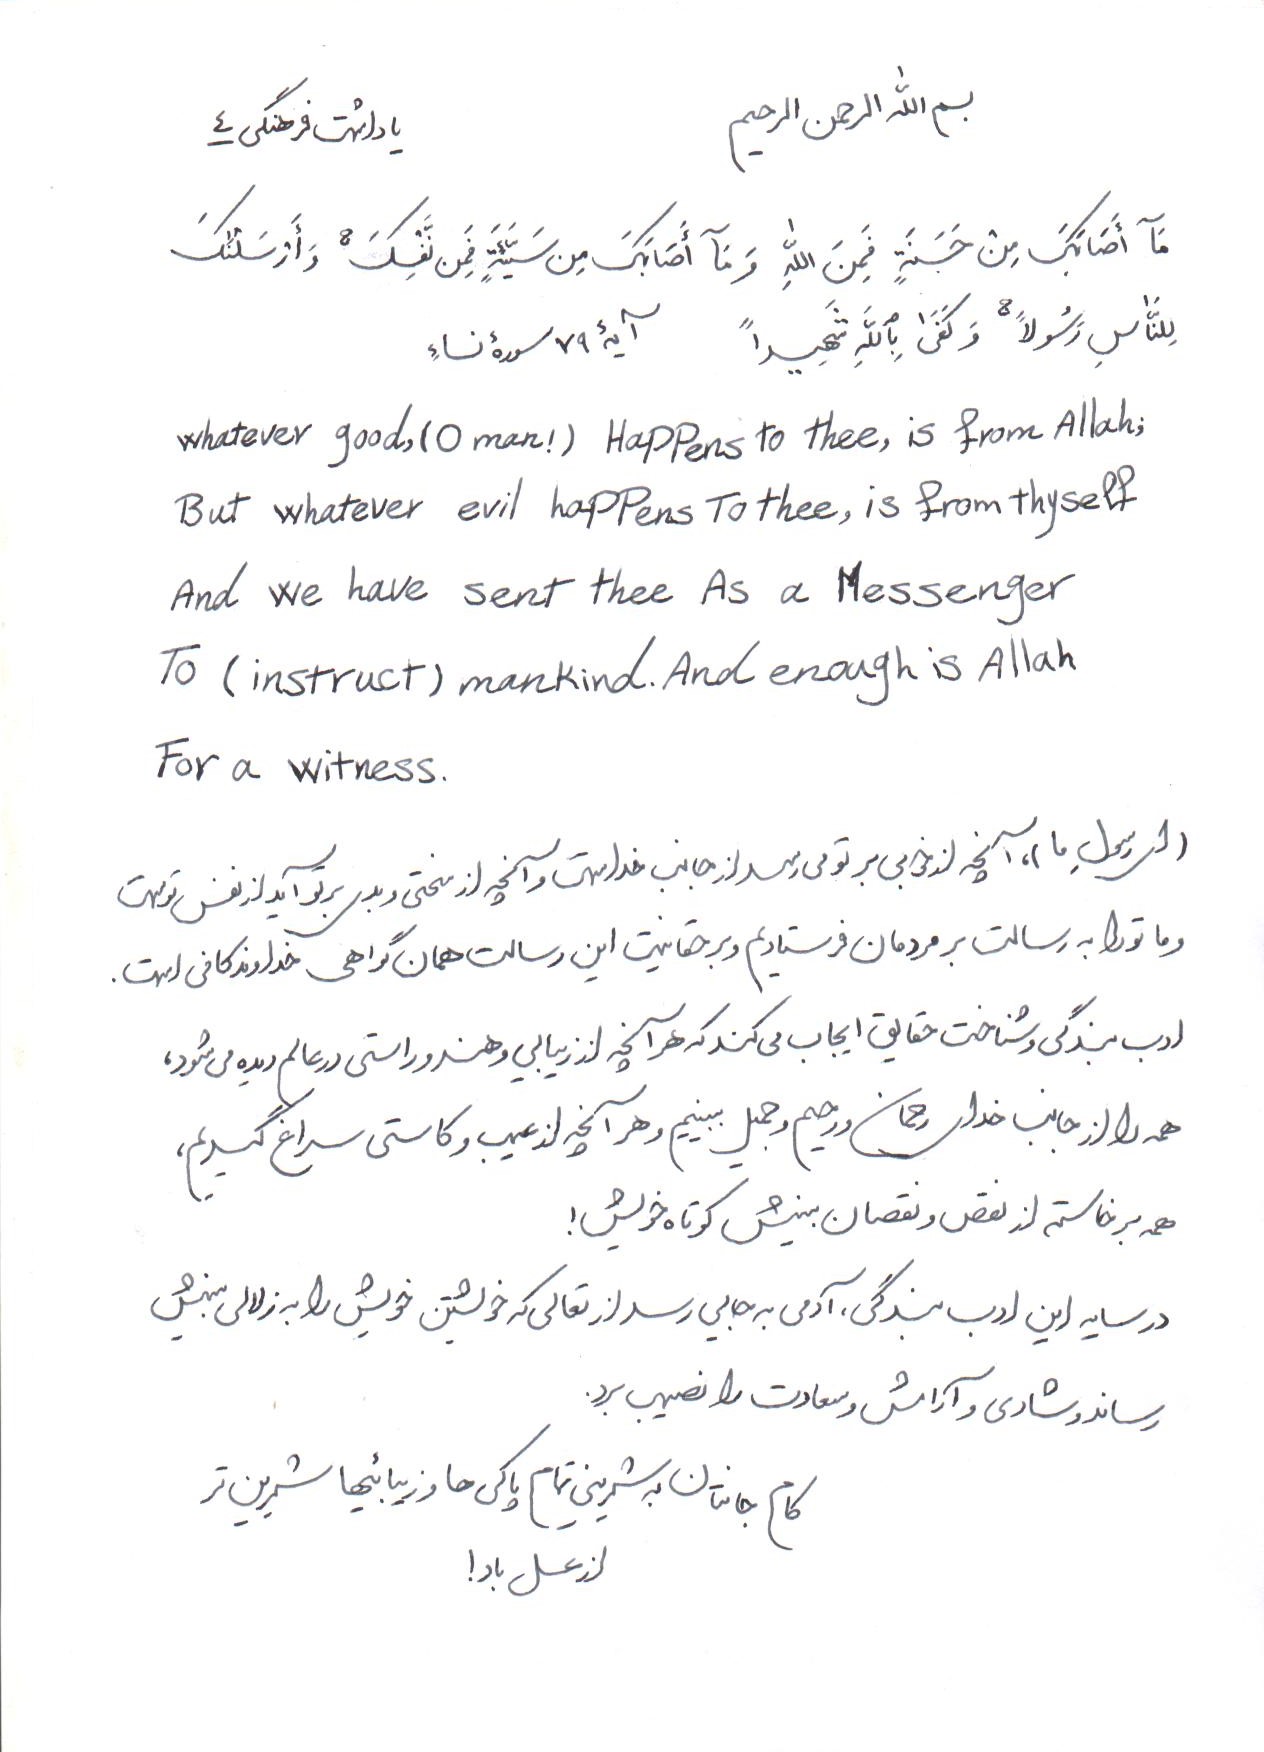 بسم الله الرحمن الرحیم
یادداشت فرهنگی ٤
مَآ أَصَابَكَ مِنْ حَسَنَةٍ فَمِنَ اللّٰهِ وَ مَآ أَصَابَكَ مِن سَيِّئَةٍ فَمِن نَّفْسِكَ ۚ وَ أَرْسَلْنٰكَ
لِلنَّاسِ رَسُولاً ۚ وَ كَفَىٰ بِٱللَّهِ شَهِيداً آیهٔ ۷۹ سورهٔ نساءِ
whatever good, (O man!) HaPPens to thee, is from Allah;
But whatever evil haPPens To thee, is from thyself
And we have sent thee As a Messenger
To (instruct) mankind. And enough is Allah
For a witness.
(ای رسولِ ما)، آنچه از خوبی بر تو می رسد از جانب خداست و آنچه از سختی و بدی بر تو آید از نفس توست
و ما تو را به رسالت بر مردمان فرستادیم و بر حقانیت این رسالت همان گواهی خداوند کافی است.
ادب بندگی و شناخت حقایق ایجاب می کند که هر آنچه از زیبایی و هنر و راستی در عالم دیده می شود،
همه را از جانب خدای رحمان و رحیم و جمیل ببینیم و هر آنچه از عیب و کاستی سراغ گیریم،
همه برخاسته از نقص و نقصان بینش کوتاه خویش!
در سایه این ادب بندگی، آدمی به جایی رسد از تعالی که خویشتن خویش را به زلالی بینش
رساند و شادی و آرامش و سعادت را نصیب برد.
کام جانتان به شیرینی تمام پاکی ها و زیبائیها شیرین تر
از عسل باد!